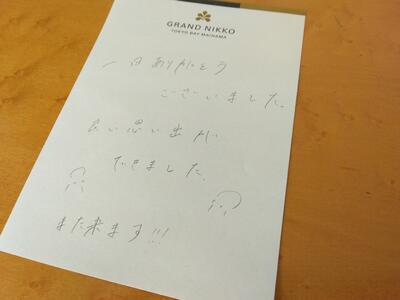 GRAND NIKKO
TOKYO BAY MAIHAMA
一日ありがとう
ございました。
良い思い出が
できました。
また来ます!!!